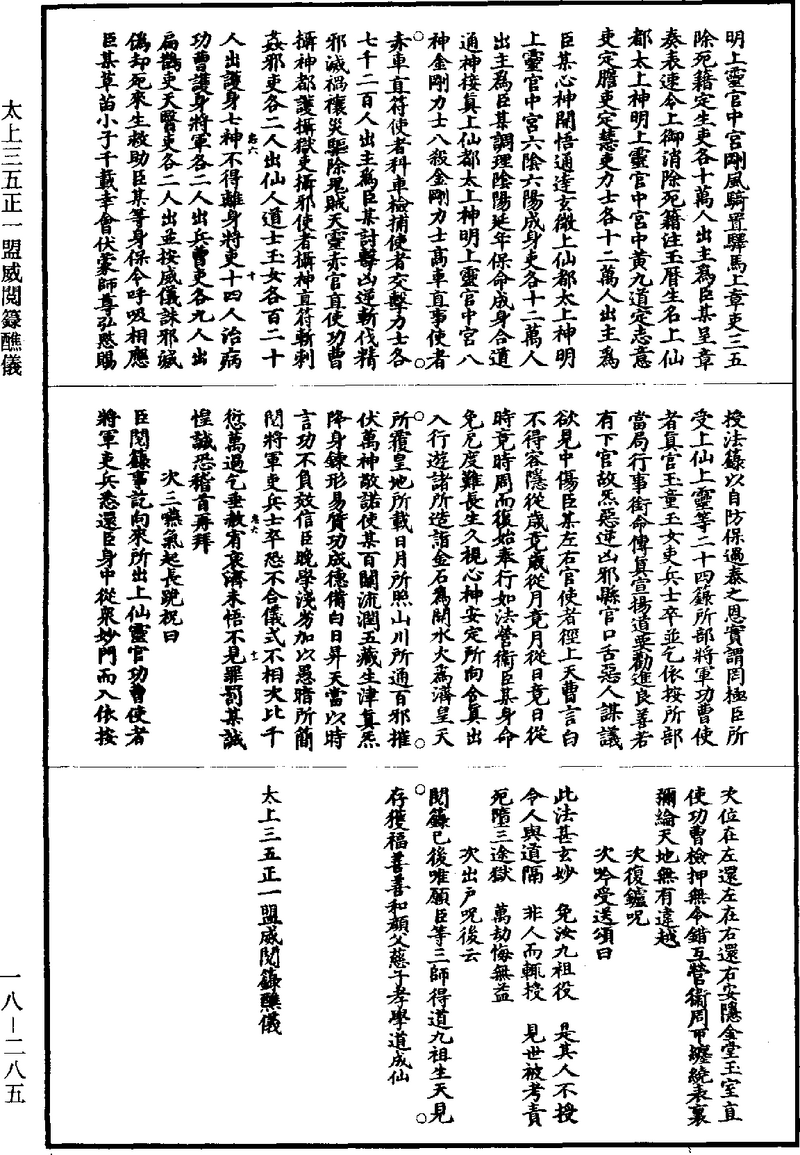 明上靈官中宮剛風騎置驛馬上章吏三五
除死籍定生吏各十萬人出主爲臣某呈章
奏表速令上御消除死籍注玉曆生名上仙
都太上神明上靈官中宮中黃九道定志意
吏定膽吏定慧吏力士各十二萬人出主爲
臣某心神開悟通達玄微上仙都太上神明
上靈官中宮六陰六陽成身吏各十二萬人
出主爲臣某調理陰陽延年保命成身合道
通神接真上仙都太上神明上靈官中宮八
神金剛力士八殺金剛力士高車直事使者
赤車直符使者科車檢捕使者交擊力士各
七千二百人出主爲臣某討擊凶逆斬伐精
邪滅禍穰災驅除鬼賊天靈赤官直使功曹
攝神都護攝獄吏攝邪使者攝神直符斬剌
姦邪吏各二人出仙人道士玉女各百二十
人出護身七神不得離身將吏十四人治病
功曹護身將軍各二人出兵曹吏各九人出
扁鵲吏天醫吏各二人出並按威儀誅邪滅
僞却死來生救助臣某等身保令呼吸相應
臣某草茁小子千載幸會伏蒙師尊弘慜賜
授法籙以自防保過泰之恩實謂罔極臣所
受上仙上靈等二十四籙所部將軍功曹使
者真官玉童玉女吏兵士卒並乞依按所部
當局行事銜命傳真宣揚道要勸進良善若
有下官故炁惡逆凶邪縣官口舌惡人謀議
欲見中傷臣某左右官使者徑上天曹言白
不得容隱從歲竟歲從月竟月從日竟日從
時竟時周而復始奉行如法營衛臣某身命
免厄度難長生久視心神安定所向合真出
入行遊諸所造詣金石爲開水火爲濟皇天
所覆皇地所載日月所照山川所通百邪摧
伏萬神敬諾使某百關流潤五藏生津真炁
降身鍊形易質功成德備白日昇天當以時
言功不負效信臣晚學淺劣加以愚暗所簡
閱將軍吏兵士卒恐不合儀式不相次比千
愆萬過乞垂赦宥哀濟未悟不見罪罰某誠
惶誠恐稽首再拜
次三嚥氣起長跪祝曰
臣閱籙事訖向來所出上仙靈官功曹使者
將軍吏兵悉還臣身中從衆妙門而入依按
次位在左還左在右還右安隱金堂玉室直
使功曹檢押無令錯互營衛周帀纏繞表裏
彌綸天地無有違越
次復鑪呪
次吟受送頌曰
此法甚玄妙　免汝九祖役　是其人不授
令人與道隔　非人而輒授　見世被考責
死墮三途獄　萬劫悔無益
次出戶呪後云
閱籙已後唯願臣等三師得道九祖生天見
存獲福善善和顏父慈子孝學道成仙
太上三五正一盟威閱籙醮儀
太上三五正一盟威閱籙醮儀
一八—二八五